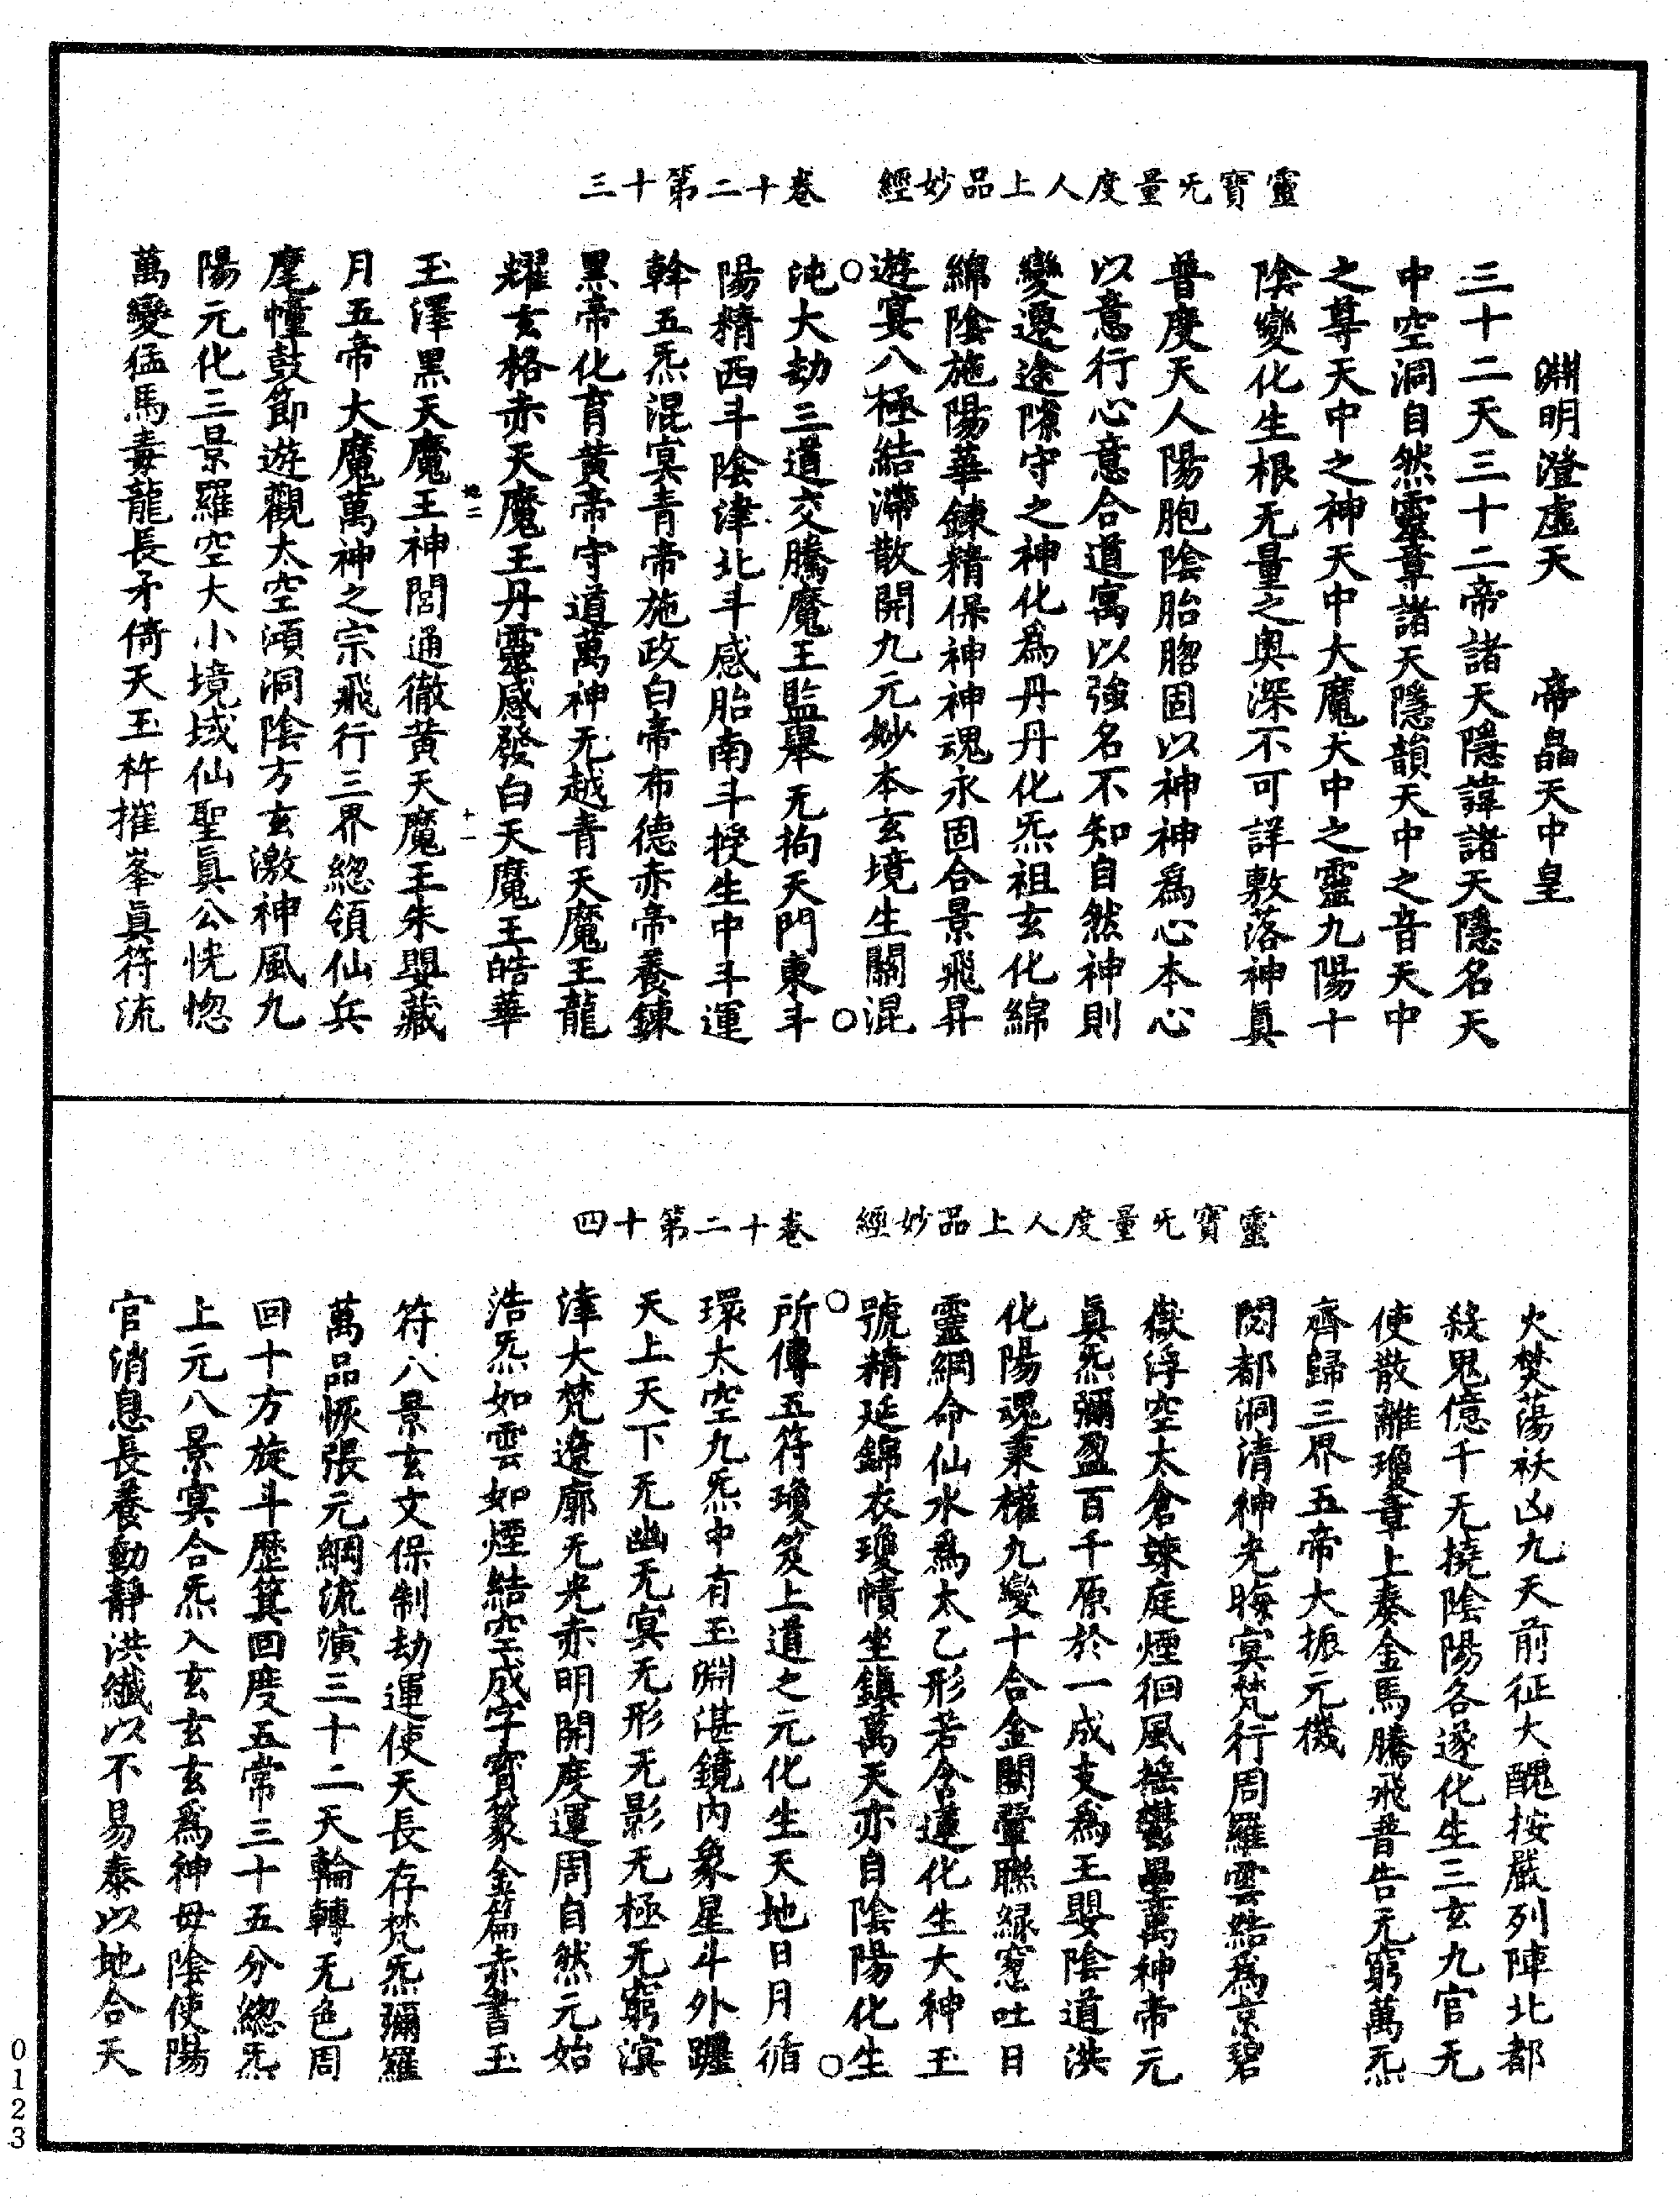 靈寶无量度人上品妙經　卷十二第十三
淵明澄虛天　帝晶天中皇
三十二天三十二帝諸天隱諱諸天隱名天
中空洞自然靈章諸天隱韻天中之音天中
之尊天中之神天中大魔天中之靈九陽十
陰變化生根无量之奧深不可詳敷落神真
普度天人陽胞陰胎胎固以神神為心本心
以意行心意合道寓以強名不知自然神則
變遷途隙守之神化為丹丹化炁祖玄化綿
綿陰施陽華鍊精保神神魂永固合景飛昇
遊宴八極結滯散開九元妙本玄境生關混
沌大劫三道交騰魔王監舉无拘天門東斗
陽精西斗陰津北斗感胎南斗授生中斗運
斡五炁混冥青帝施政白帝布德赤帝養鍊
黑帝化育黃帝守道萬神无越青天魔王龍
耀玄格赤天魔王丹靈感發白天魔王皓華
玉澤黑天魔王神閭通徹黃天魔王朱嬰藏
地二　十一
月五帝大魔萬神之宗飛行三界總領仙兵
麾幢鼓節遊觀太空澒洞陰方玄激神風九
陽元化三景羅空大小境域仙聖真公恍惚
萬變猛馬毒龍長矛倚天玉杵摧峯真符流
靈寶无量度人上品妙經　卷十二第十四
火焚蕩祅凶九天前征大醜按嚴列陣北都
殺鬼億千无撓陰陽各遂化生三玄九官无
使散離瓊章上奏金馬騰飛普告无窮萬炁
齊歸三界五帝大振元機
閔都洞清神光晦冥梵行周羅雲結為京碧
嶽浮空太倉竦庭煙徊風搖鬱壘萬神帝元
真炁彌盈百千原於一成支為王嬰陰道洪
化陽魂秉權九變十合金關聳聯綠窓吐日
靈綱命仙水為太乙形若含蓮化生大神玉
號精延錦衣瓊幘坐鎮萬天亦自陰陽化生
所傳五符瓊笈上道之元化生天地日月循
環太空九炁中有玉淵湛鏡內象星斗外躔
天上天下无幽无冥无形无影无極无窮溟
涬大梵遼廓无光赤明開度運周自然元始
浩炁如雲如煙結空成字寶篆金篇赤書玉
符八景玄文保制劫運使天長存梵炁彌羅
萬品恢張元綱流演三十二天輪轉无色周
回十方旋斗歷箕回度五常三十五分總炁
上元八景冥合炁入玄玄玄為神母陰使陽
官消息長養動靜洪纖以不易泰以地合天
0123